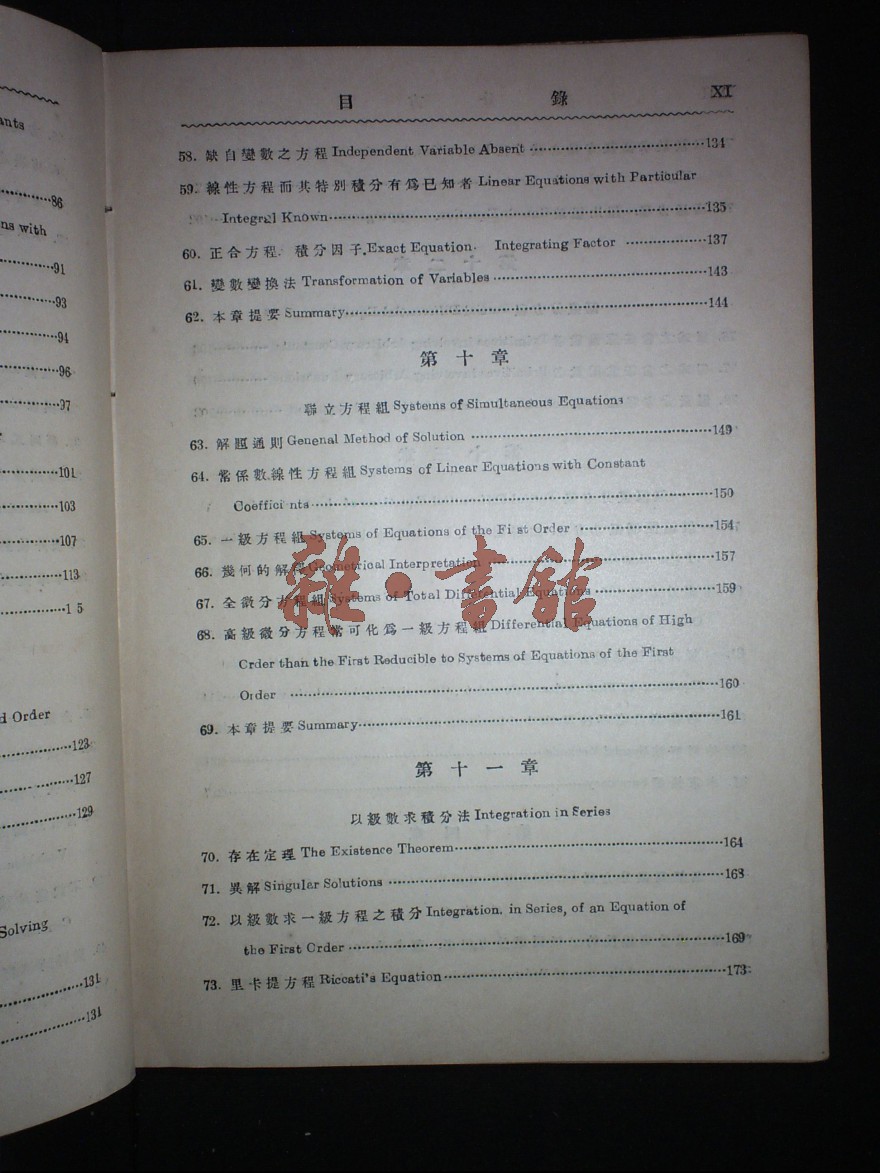 ants
86
ns with
91
93
94
96
97
101
103
107
113
1 5
d Order
123
127
129
Solving
131
131
目 錄 XI
58. 缺自變數之方程 Independent Variable Absent 134
59. 線性方程而其特別積分有爲已知者 Linear Equations with Particular
Integral Known 135
60. 正合方程. 積分因子. Exact Equation. Integrating Factor 137
61. 變數變換法 Transformation of Variables 143
62. 本章提要 Summary 144
第十章
聯立方程組 Systems of Simultaneous Equations
63. 解題通則 Genenal Method of Solution 149
64. 常係數線性方程組 Systems of Linear Equations with Constant
Coeffici nts 150
65. 一級方程組 Systems of Equations of the Fi st Order 154
66. 幾何的解釋 Geometrical Interpretation 157
67. 全微分方程組 Systems of Total Differential Equations 159
68. 高級微分方程常可化爲一級方程組 Differential Equations of High
Crder than the First Reducible to Systems of Equations of the First
Order 160
69. 本章提要 Summary 161
雜·書館
第十一章
以級數求積分法 Integration in Series
70. 存在定理 The Existence Theorem 164
71. 異解 Singular Solutions 168
72. 以級數求一級方程之積分 Integration. in Series, of an Equation of
the First Order 169
73. 里卡提方程 Riccati's Equation 173